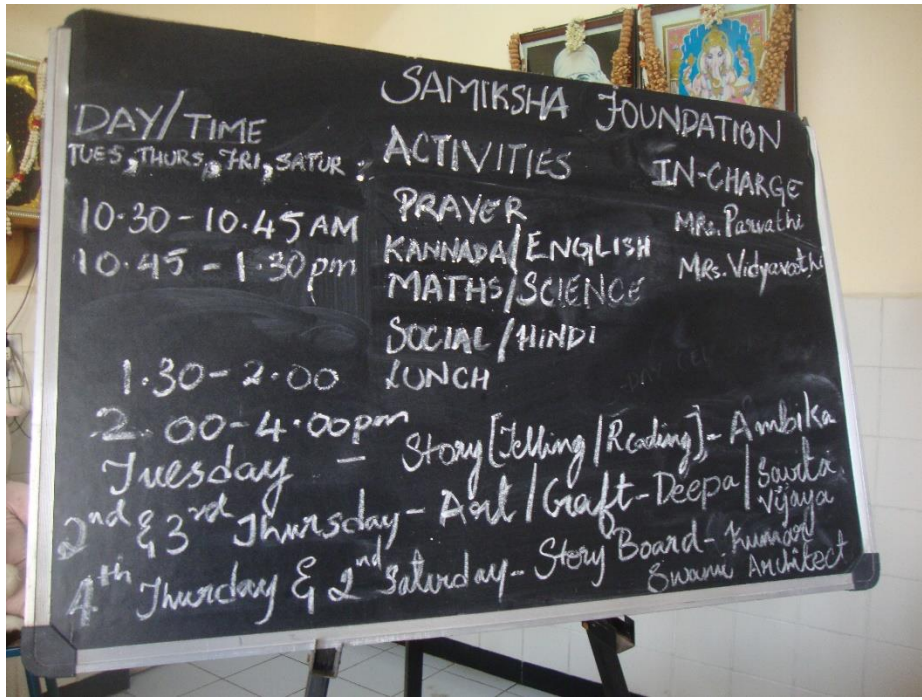 SAMIKSHA FOUNDATION
DAY/TIME ACTIVITIES IN-CHARGE
TUES, THURS, FRI, SATUR:
10.30 - 10.45 AM PRAYER MRs. Parvathi
10.45 - 1.30 pm KANNADA/ENGLISH MRs. Vidyavathi
MATHS/SCIENCE
SOCIAL/HINDI
1.30 - 2.00 LUNCH
2.00 - 4.00 pm
Tuesday - Story [Telling/Reading] - Ambika
2nd & 3rd Thursday - Art/Craft - Deepa/Savita
Vijaya
4th Thurday & 2nd Saturday - Story Board - Kumar
Swami Architect